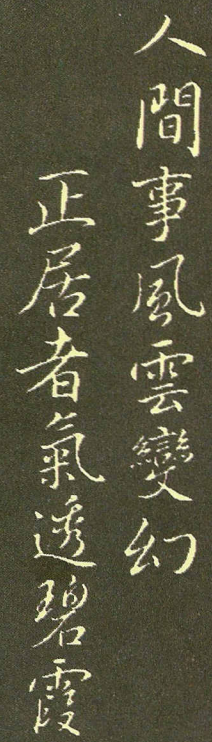 人間事風雲變幻
正居者氣透碧霞